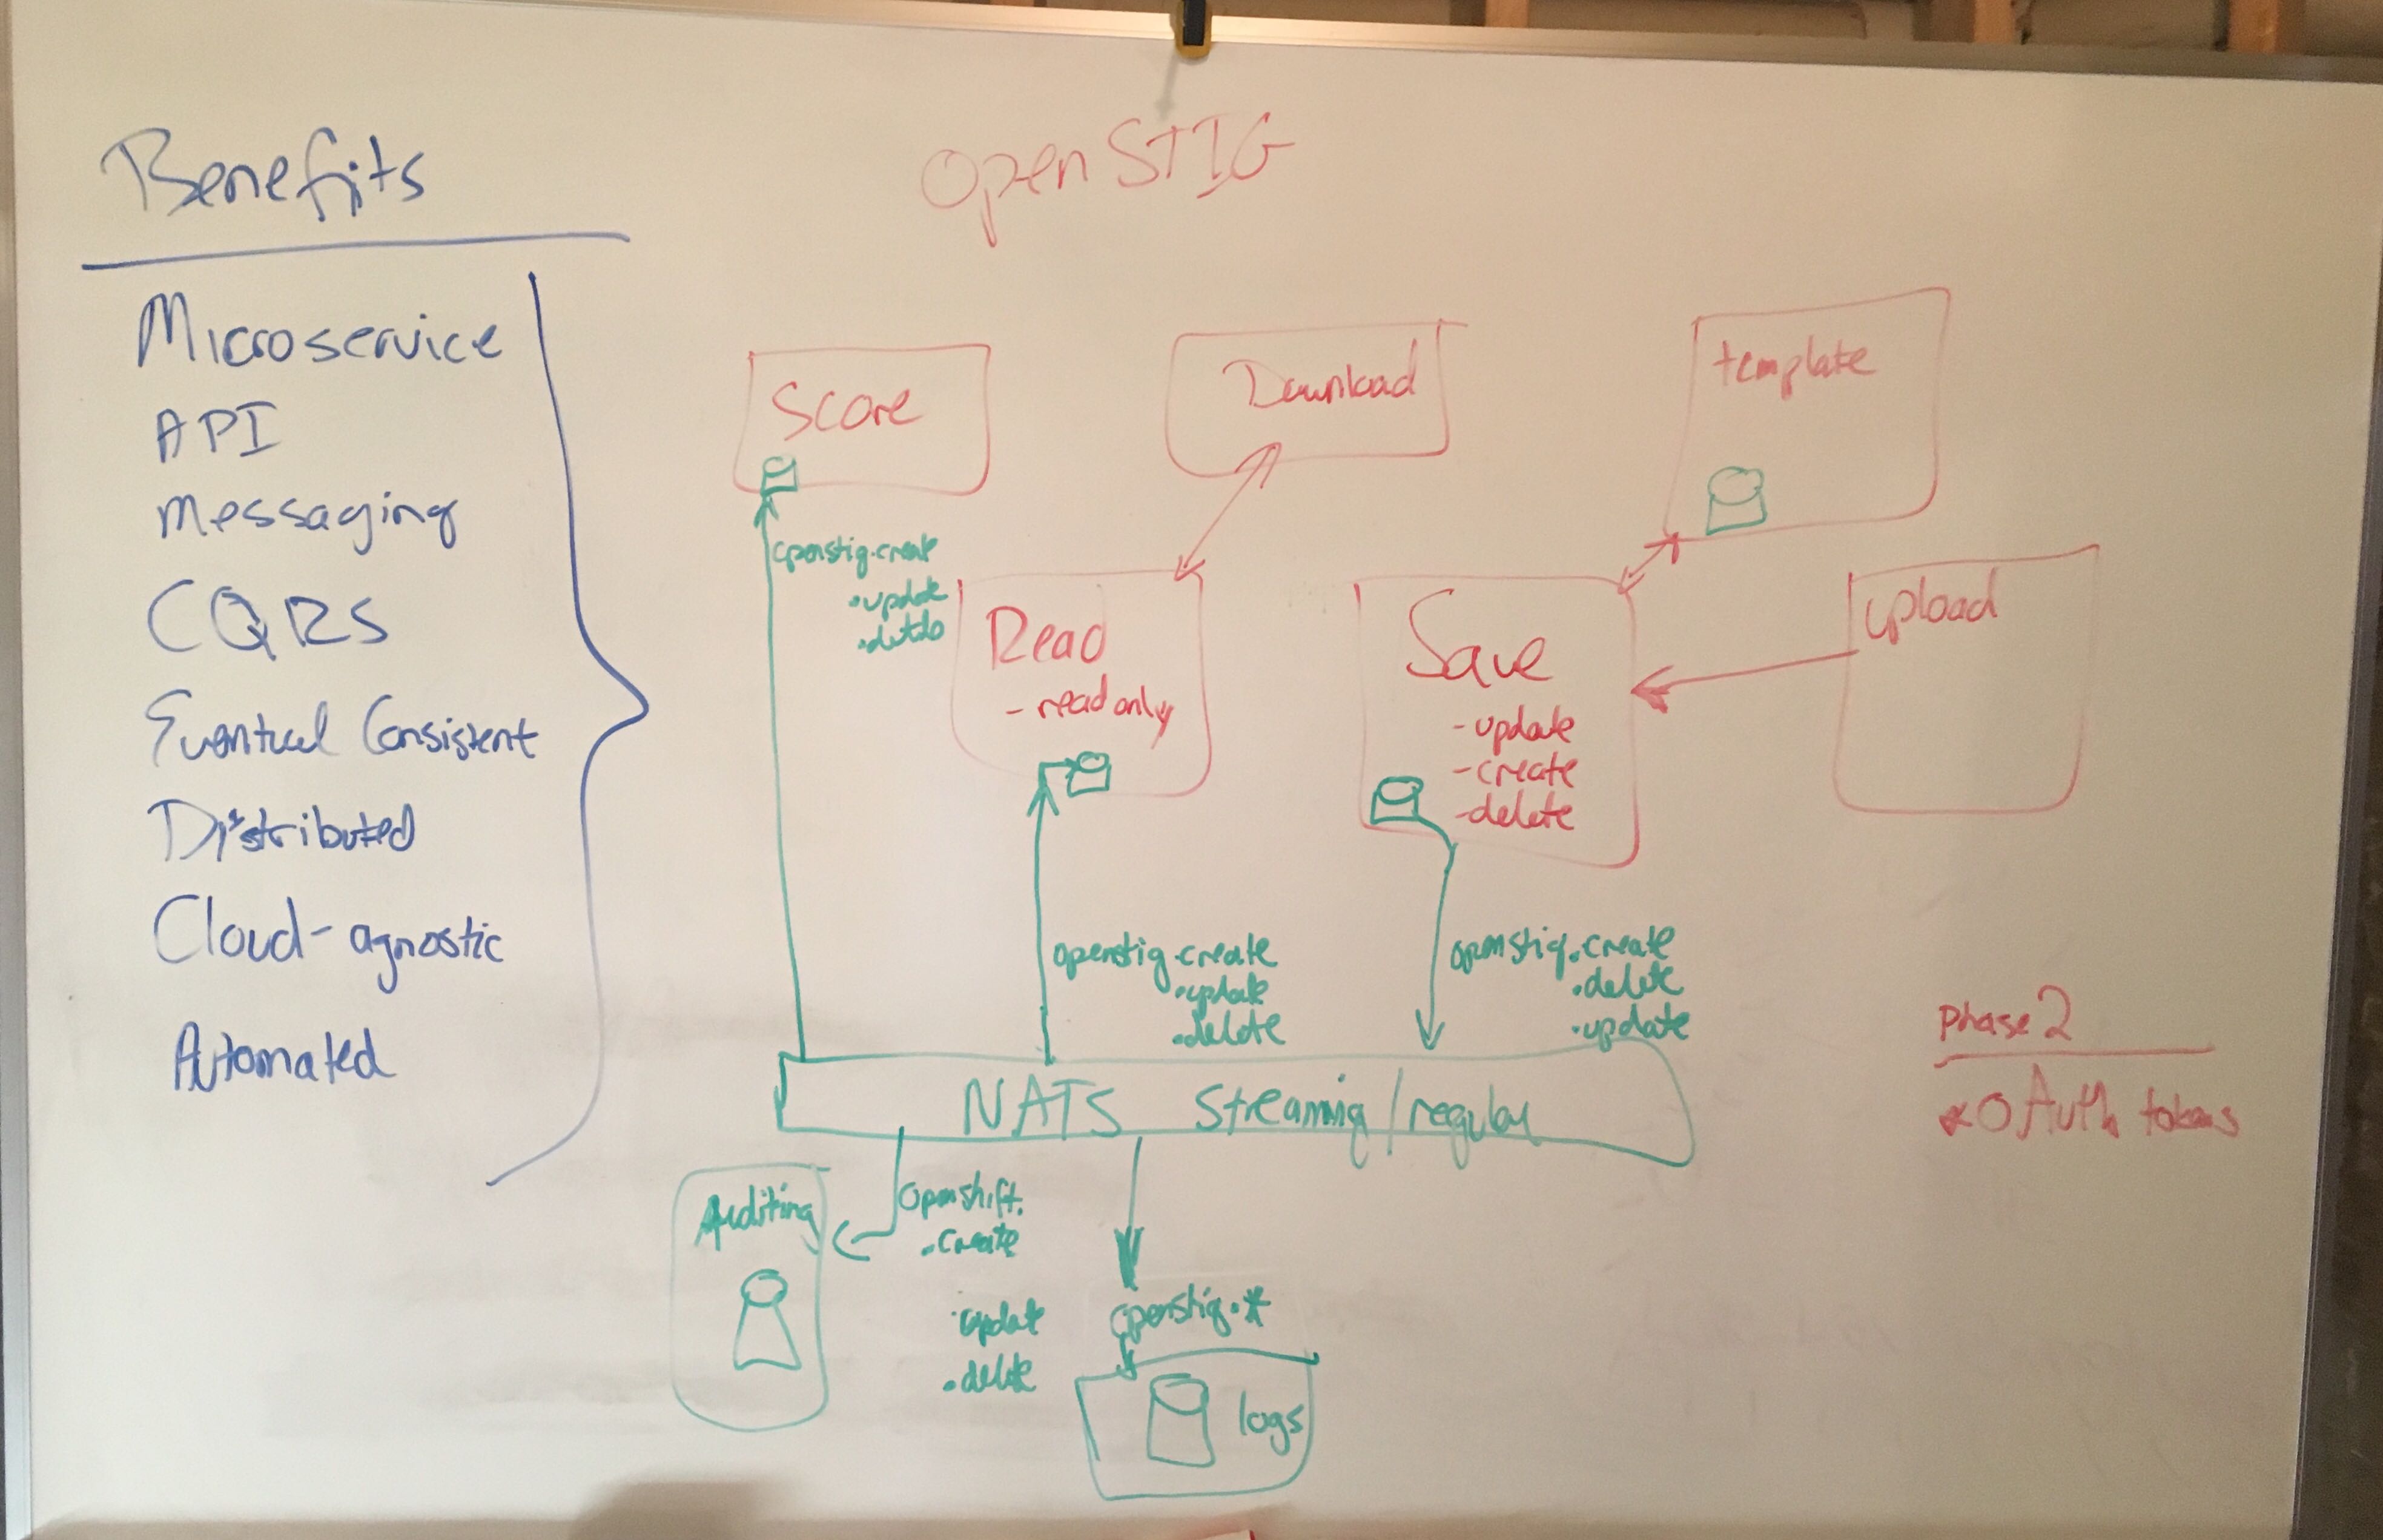 Benefits
Microservice
API
Messaging
CQRS
Eventual Consistent
Distributed
Cloud-agnostic
Automated
OpenSTIG
Score
Download
template
openstig.create
.update
.delete
Read
- read only
Save
- update
- create
- delete
upload
openstig.create
.update
.delete
openstig.create
.delete
.update
NATS Streaming/regular
Auditing
Openshift.
.create
.update
.delete
openstig.*
logs
Phase 2
* OAuth tokens